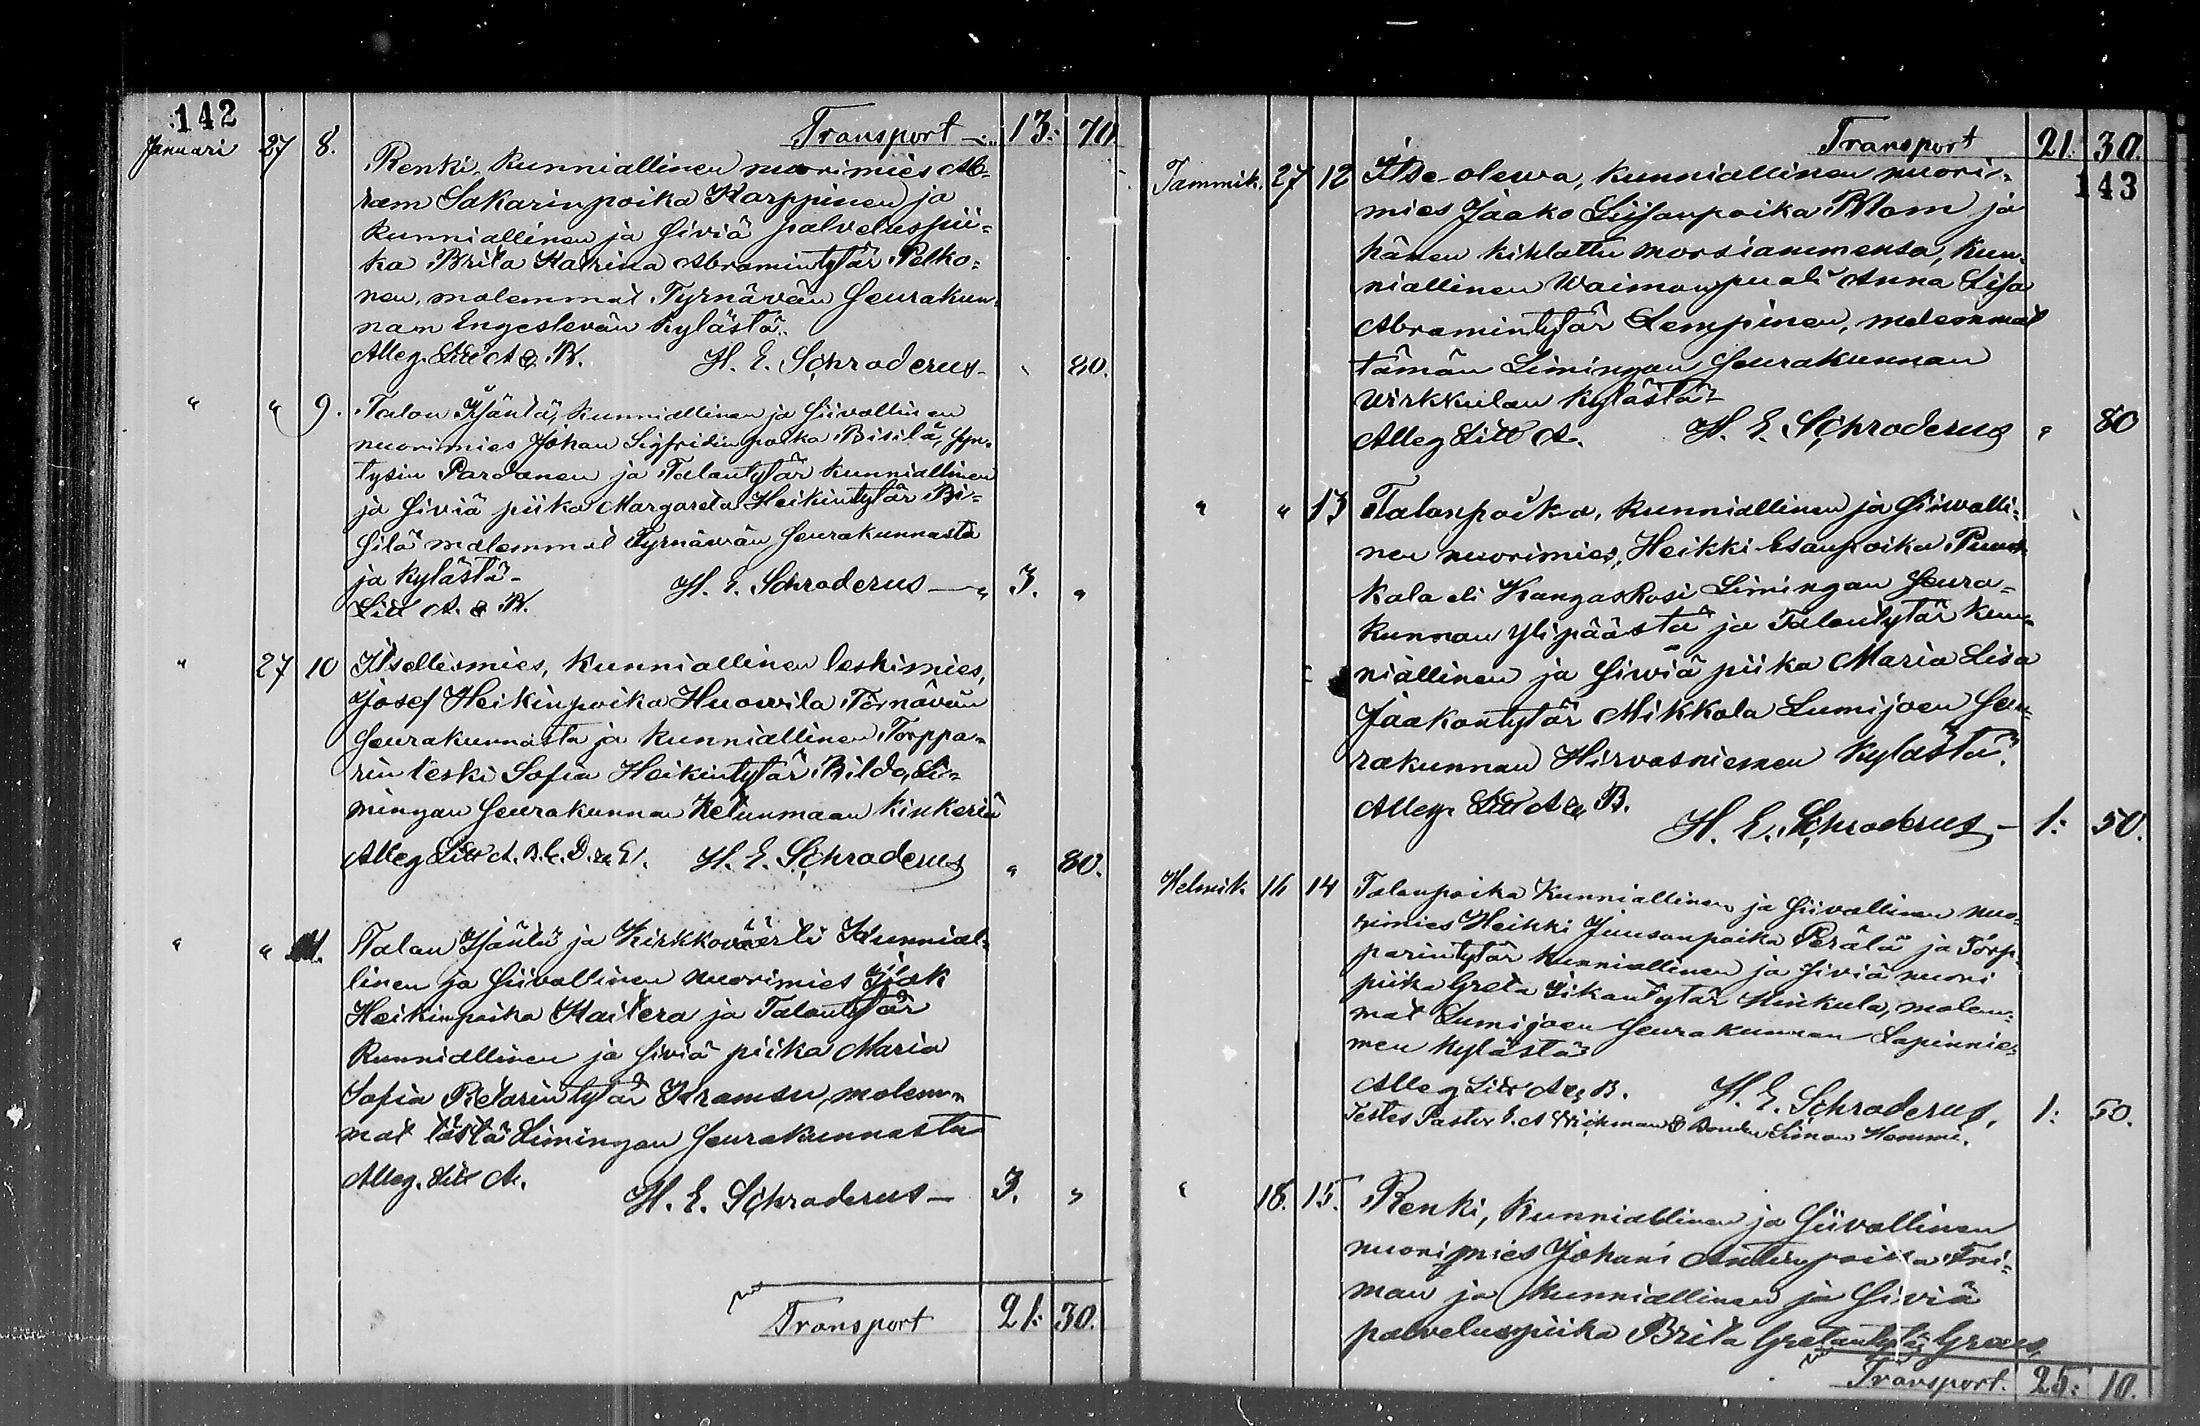 142
Transport 13: 70
Januari 27 8. Renki, kunniallinen nuorimies Ab=
ram Sakarinpoika Karppinen ja
kunniallinen ja siviä palveluspii=
ka Brita Katrina Abramintytär Pelko=
nen, molemmat Tyrnävän Seurakun=
nam Engeslevän kylästä.
Alleg. Litt A & B. H. E. Schroderus - " 80.
" " 9. Talon Isäntä, kunniallinen ja siivollinen
nuorimies Johan Sigfridin poika Bisilä, syn=
tysin Pardanen ja Talontytär kunniallinen
ja siviä piika Margareta Heikintytär Bi=
silä molemmat Tyrnävän Seurakunnasta
ja kylästä -
H. E. Schroderus — " 3. "
Litt A. & B.
" 27 10 Itsellismies, kunniallinen leskimies,
Josef Heikinpoika Huovila Törnävän
Seurakunnasta ja kunniallinen Torppa=
rin leski Sofia Heikintytär Bildo, Li=
mingan Seurakunnan Ketunmaan kinkeriä
Alleg Litt A. B. C. D. & E. H. E. Schroderus " 80.
" " 11. Talon Isäntä ja Kirkkoväärti Kunnial=
linen ja siivollinen nuorimies Isak
Heikinpoika Kaitera ja Talontytär
kunniallinen ja siviä piika Maria
Sofia Pietarintytär Kramsu, molem=
mat tästä Limingan Seurakunnasta
Alleg. Litt A.
H. E. Schroderus — 3. "
Transport 21: 30.
Transport 21: 30.
143
Tammik. 27 12 Itse-olewa, kunniallinen nuori=
mies Jaako Liisanpoika Blom ja
hänen kihlattu morsiammensa, kun=
niallinen Waimonpuoli Anna Lisa
Abramintytär Lempinen, molemmat
tämän Limingan Seurakunnan
Wirkkulan kylästä
Alleg Litt A. H. E. Schroderus " 80
" " 13 Talonpoika, kunniallinen ja siiwolli=
nen nuorimies, Heikki Esanpoika
kala eli Kangaskosi Limingan Seura=
kunnan ylipäästä ja Talontytär kun=
niallinen ja siwiä piika Maria Lisa
Jaakontytär Mikkola Lumijoen Seu=
rakunnan Hirvasniemen kylästä.
Alleg. Litt A & B.
H. E. Schroderus, — 1: 50.
Helmik. 16 14 Talonpoika Kunniallinen ja siivollinen nuo=
rimies Heikki Juusonpoika Perälä ja Torp=
parintytär kunniallinen ja siviä nuori
piika Greta Iikantytär molem=
mat Lumijoen Seurakunnan Lapinnie=
men kylästä
Alleg Litt A & B. H. E. Schroderus, 1: 50.
Testes Pastor E. A Wickman & Bonden Simon Hommi.
" 18. 15. Renki, kunniallinen ja siivollinen
nuorimies Johani Antinpoika Fri=
man ja kunniallinen ja siviä
palveluspiika Brita Gretantytär
Transport. 25: 10.